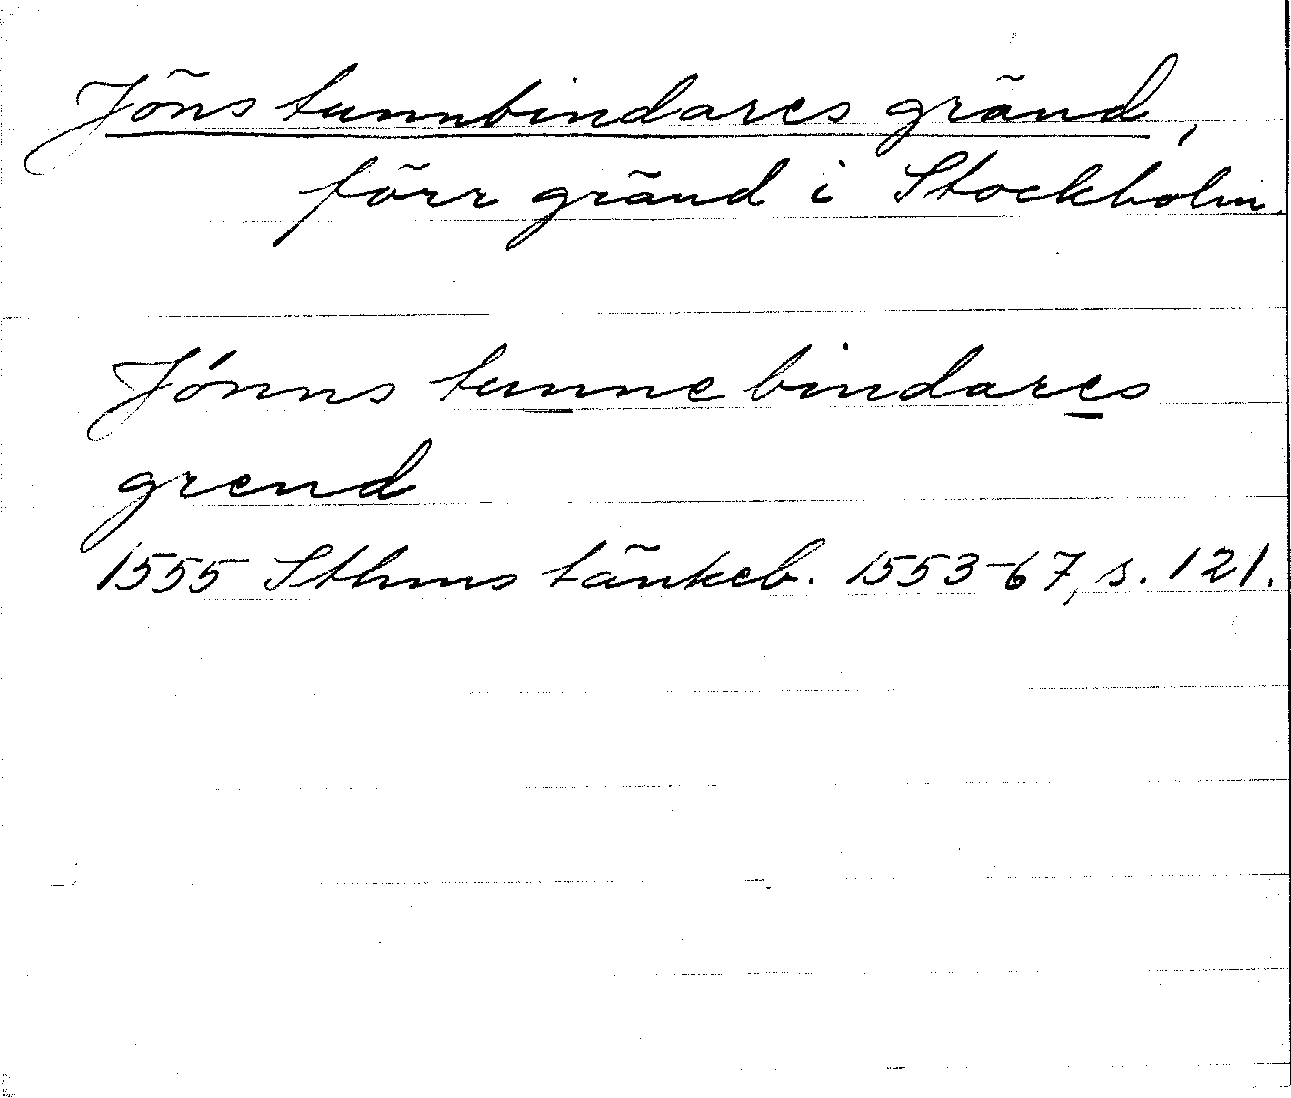 Jöns tunnbindares gränd,
förr gränd i Stockholm.
Jónns tunnebindares
grend
1555 Sthms tänkeb. 1553-67, s. 121.